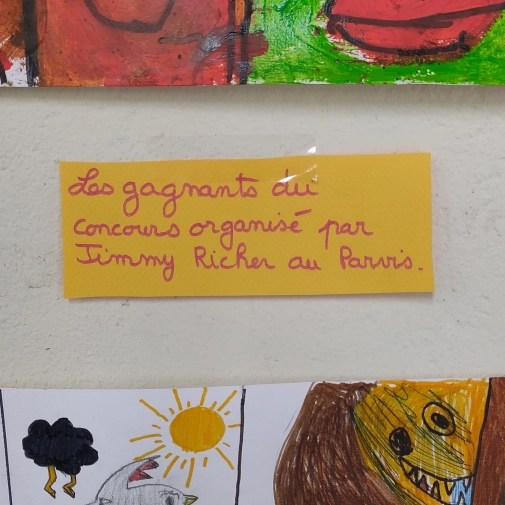 Les gagnants du
concours organisé par
Jimmy Richer au Parvis.